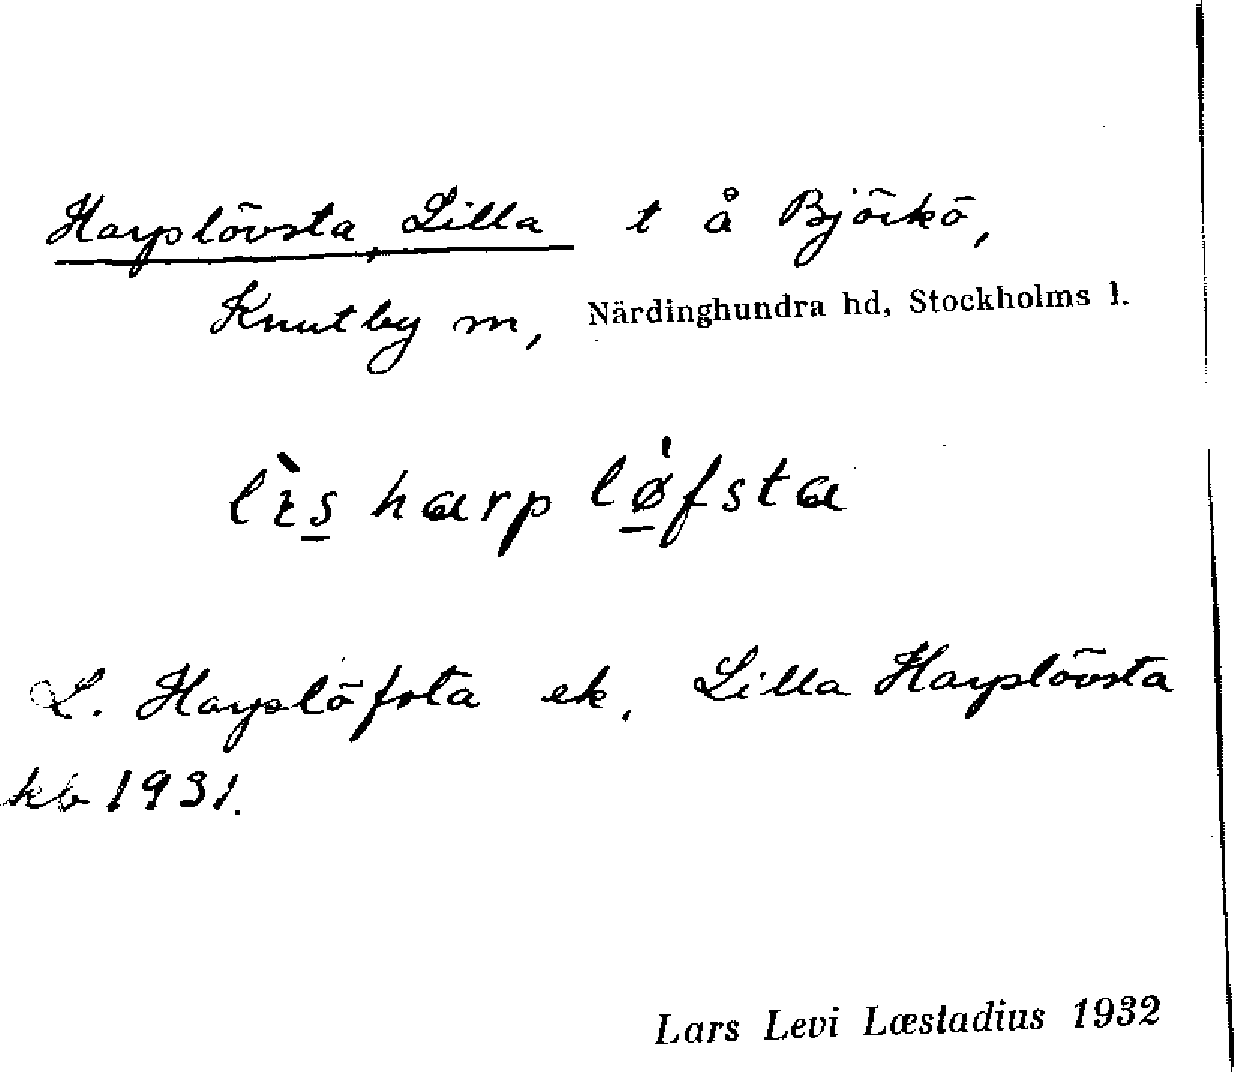 Harplövsta, Lilla t å Björkö,
Knutby sn, Närdinghundra hd, Stockholms l.
harp løfsta
L. Harplöfsta ek, Lilla Harplövsta
kb 1931.
Lars Levi Læstadius 1932